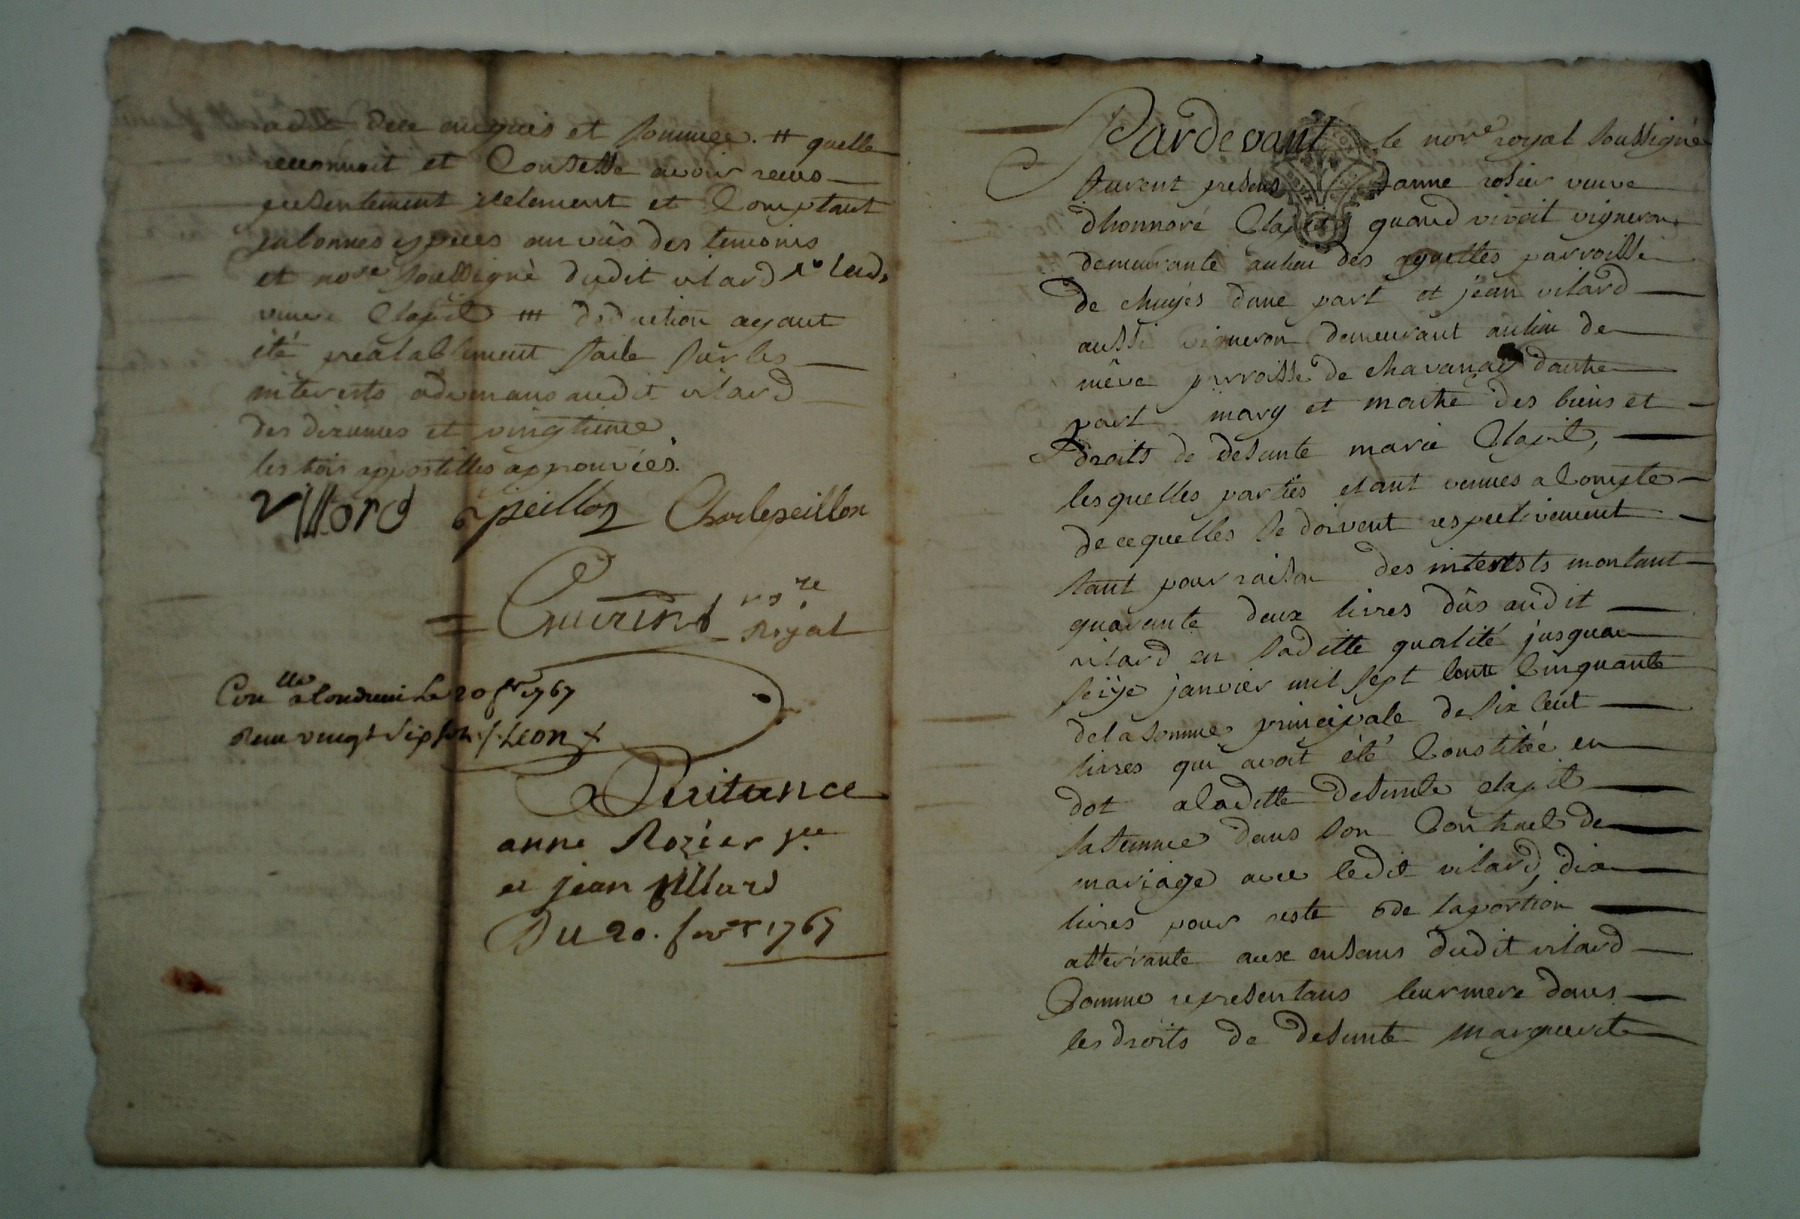 et sommée. # quelle
reconnoit et Confesse avoir receu
presentement reelement et Comptant
en bonnes especes au vûs des temoins
et nore soussigné dudit vilard
veuve Clapil # deduction ayant
été prealablement faite sur les
interets audit vilard
des dixiemes et vingtieme
les trois appostilles approuvées.
Villard peillon Charlepeillon
Guérin nore
Royal
a Condrieu le 20 fr 1767
vingt six sols Leon
Quitance
anne Rozier
et jean Villard
Du 20. fevrer 1767
Pardevant le nore royal soussigné
furent presens anne rosier veuve
dhonnoré Clapil quand vivoit vigneron
demeurante au lieu des parroisse
de chuyés dune part et jean vilard
aussi vigneron demeurant au lieu de
méve parroisse de chavanay dautre
part mary et maitre des biens et
droits de defunte marie Clapil,
lesquelles parties etant venues a Compte
de ce quelles se doivent respectivement
tant pour raison des interests montant
quarante deux livres dûs audit
vilard en sa ditte qualité jusquau
seize janvier mil sept cent Cinquante
de la somme principale de six Cent
livres qui avoit été Constituée en
dot a la ditte defunte clapil
sa femme dans son Contract de
mariage avec ledit vilard, dix
livres pour reste de la portion
afferrante aux enfans dudit vilard
Comme representans leur mere dans
les droits de defunte marguerite